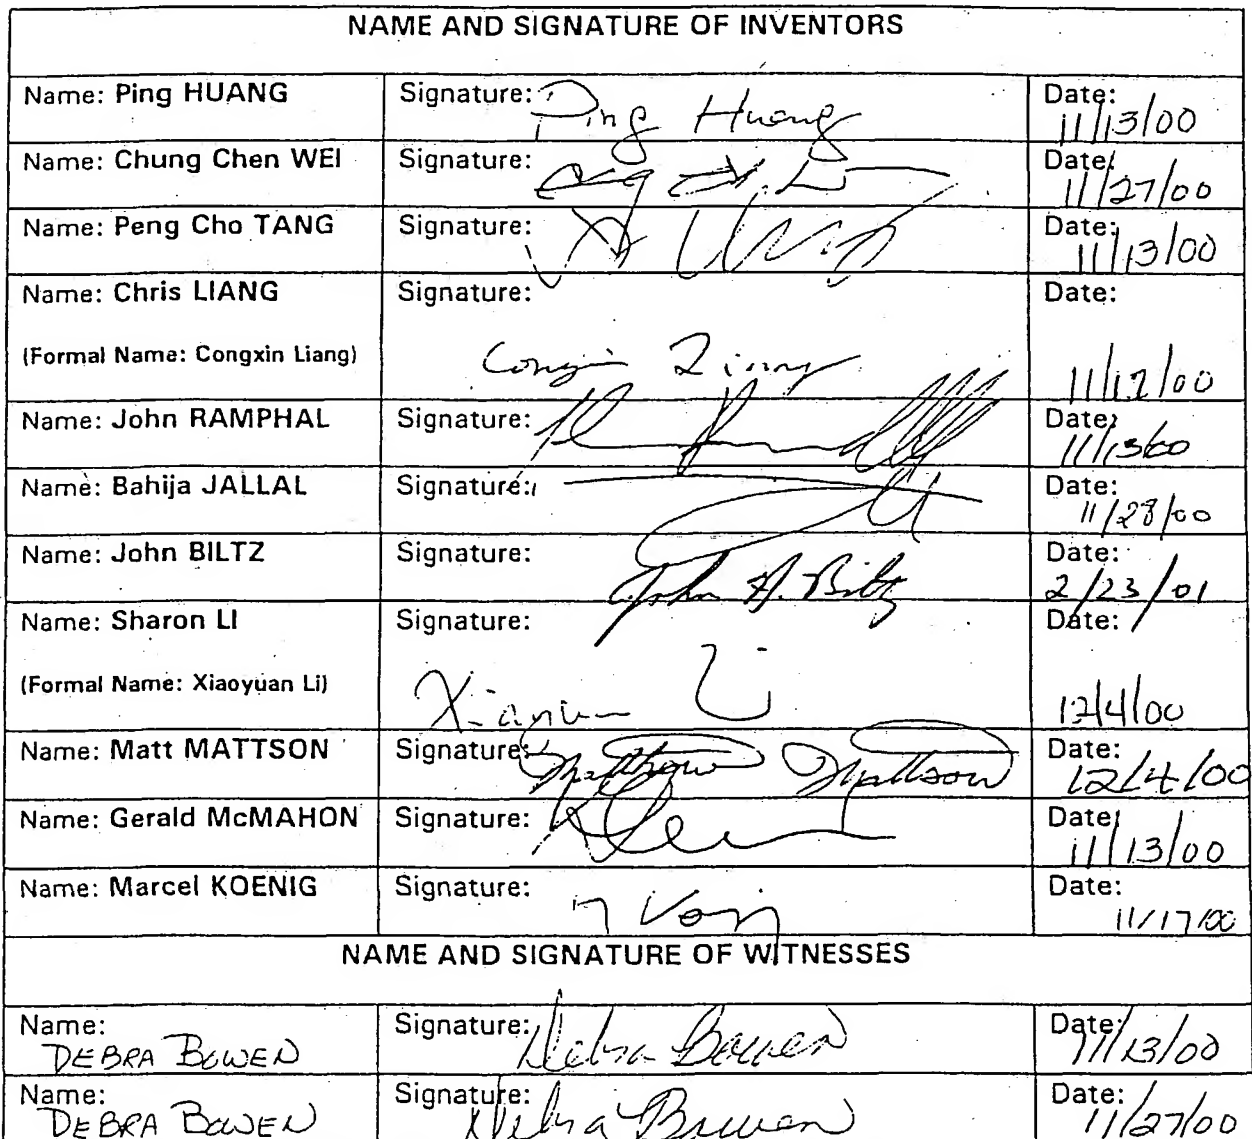 NAME AND SIGNATURE OF INVENTORS
Name: Ping HUANG Signature: Ping Huang Date: 11/13/00
Name: Chung Chen WEI Signature: Date: 11/27/00
Name: Peng Cho TANG Signature: Date: 11/13/00
Name: Chris LIANG Signature: Date:
(Formal Name: Congxin Liang) Congxin Liang 11/12/00
Name: John RAMPHAL Signature: Date: 11/13/00
Name: Bahija JALLAL Signature: Date: 11/28/00
Name: John BILTZ Signature: John A. Biltz Date: 2/23/01
Name: Sharon LI Signature: Date:
(Formal Name: Xiaoyuan Li) Xiaoyuan Li 12/4/00
Name: Matt MATTSON Signature: Matthew Mattson Date: 12/4/00
Name: Gerald McMAHON Signature: Date: 11/13/00
Name: Marcel KOENIG Signature: Date: 11/17/00
NAME AND SIGNATURE OF WITNESSES
Name: DEBRA BOWEN Signature: Debra Bowen Date: 11/13/00
Name: DEBRA BOWEN Signature: Debra Bowen Date: 11/27/00